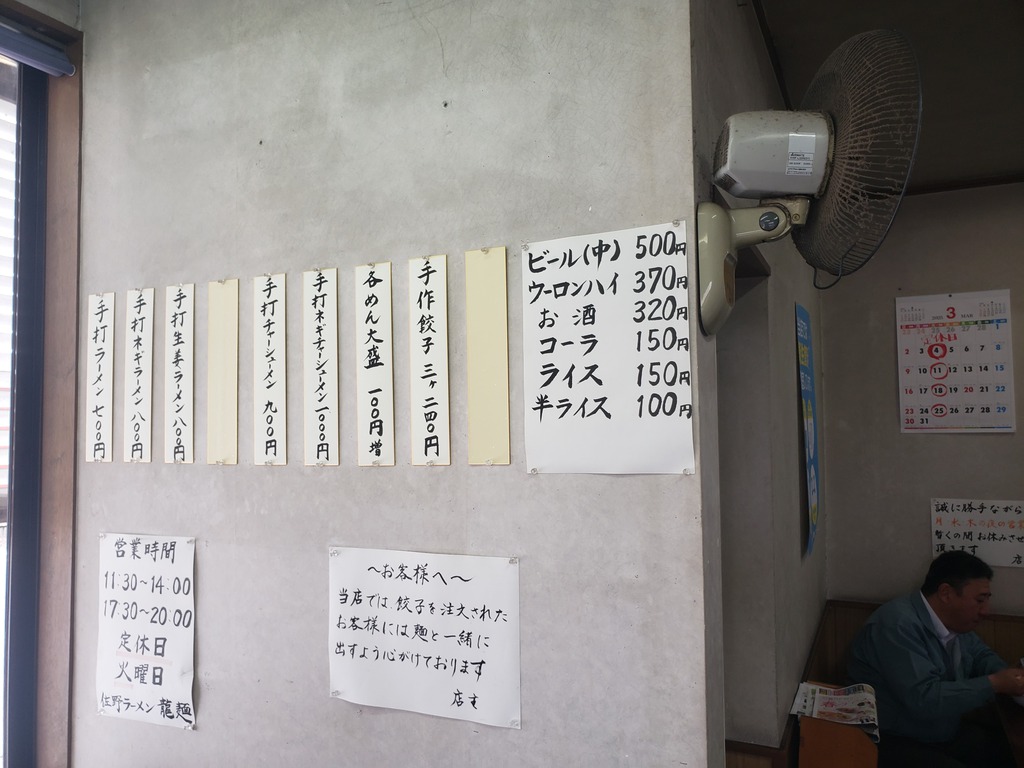 手打ラーメン 七〇〇円
手打ネギラーメン 八〇〇円
手打生姜ラーメン 八〇〇円
手打チャーシューメン 九〇〇円
手打ネギチャーシューメン 一〇〇〇円
各めん大盛 一〇〇円増
手作餃子 三ヶ 二四〇円
ビール(中) 500円
ウーロンハイ 370円
お酒 320円
コーラ 150円
ライス 150円
半ライス 100円
営業時間
11:30~14:00
17:30~20:00
定休日
火曜日
佐野ラーメン 龍麺
~お客様へ~
当店では、餃子を注文された
お客様には麺と一緒に
出すよう心がけております
店主
3
休日
1
2 3 4 5 6 7 8
9 10 11 12 13 14 15
16 17 18 19 20 21 22
23 24 25 26 27 28 29
30 31
誠に勝手ながら
月、水、木の夜の営業
暫くの間お休みさせ
頂きます
店